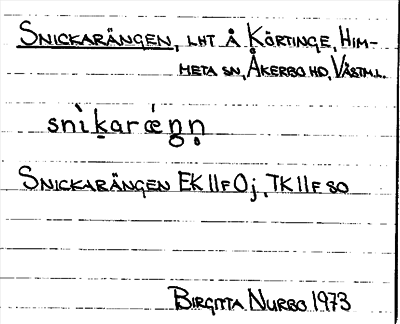 SNICKARÄNGEN, LHT Å KÖRTINGE, HIM-
META SN, ÅKERBO HD, VÄSTML.
snìḵar ǽn̥n̥
SNICKARÄNGEN EK 11F 0j, TK 11F SO
BIRGITTA NURBO 1973